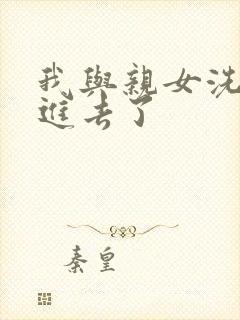 我與親女洗
進去了
秦皇